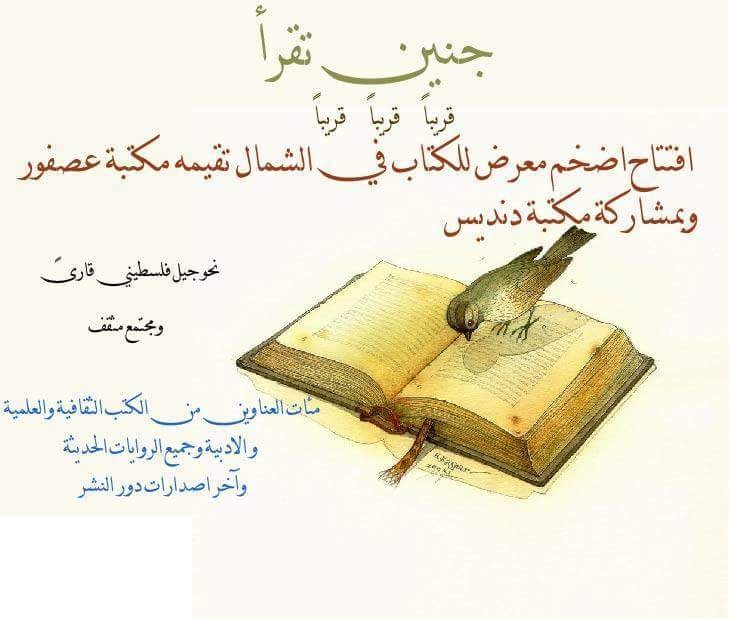 جنين تقرأ
قريباً قريباً قريباً
افتتاح اضخم معرض للكتاب في الشمال تقيمه مكتبة عصفور
وبمشاركة مكتبة دنديس
نحو جيل فلسطيني قارئ
ومجتمع مثقف
مئات العناوين من الكتب الثقافية والعلمية
والادبية وجميع الروايات الحديثة
وآخر اصدارات دور النشر